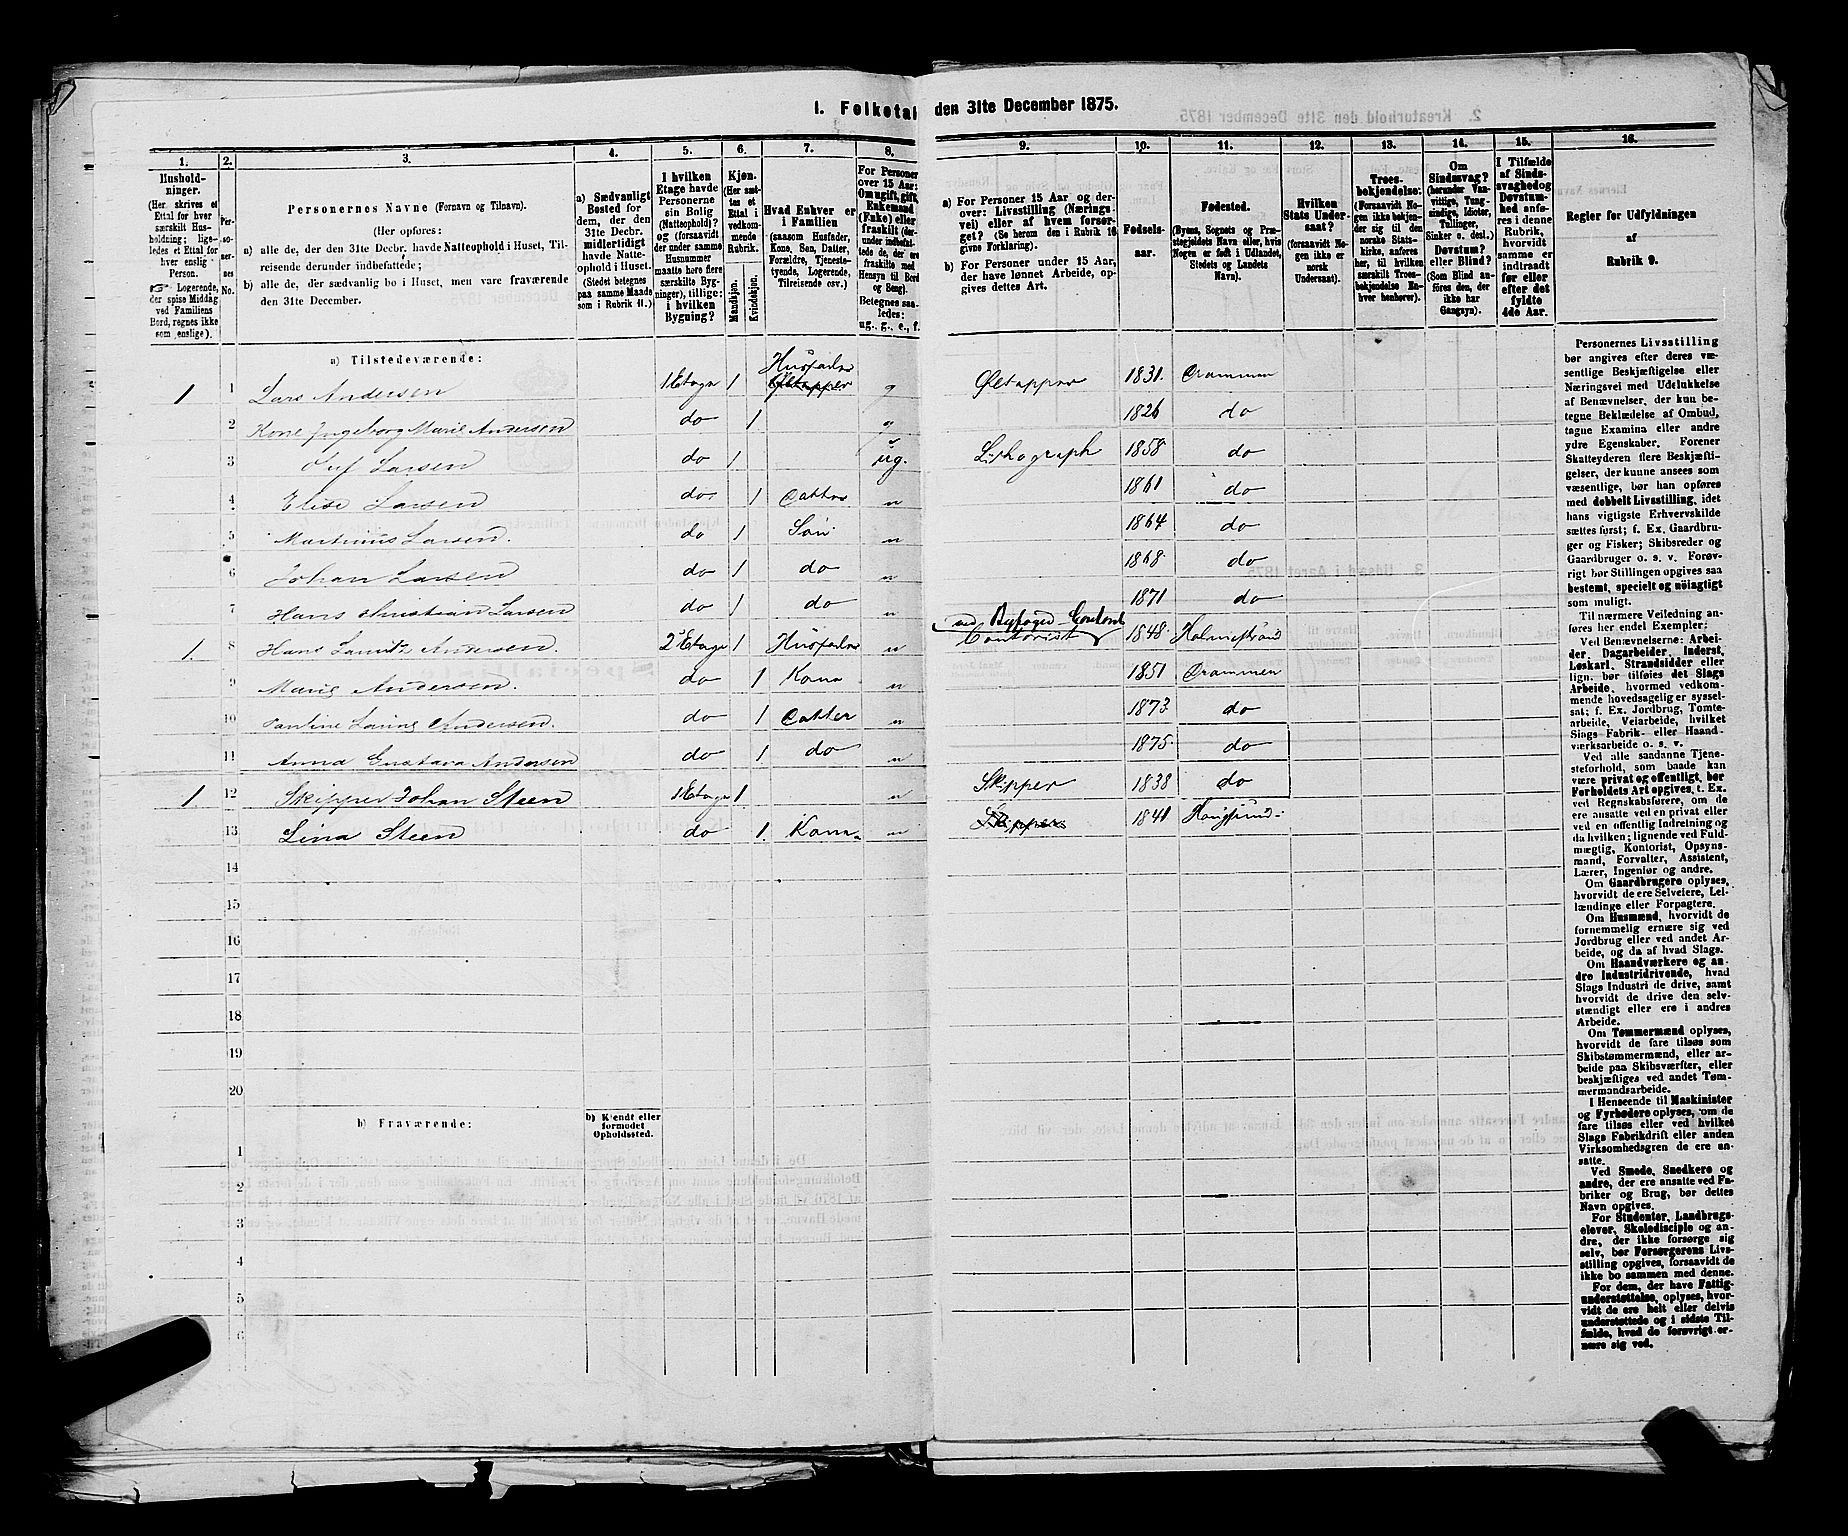 1. Folketal den 31te December 1875.
1. 2. 3. 4. 5. 6. 7. 8. 9. 10. 11. 12. 13. 14. 15. 16.
Husholdninger. (Her skrives et Ettal for hver særskilt Husholdning; ligeledes et Ettal for hver enslig Person. Logerende, der spise Middag ved Familiens Bord, regnes ikke som enslige).
Personernes No.
Personernes Navne (Fornavn og Tilnavn).
(Her opføres:
a) alle de, der den 31te Decbr. havde Natteophold i Huset, Tilreisende derunder indbefattede;
b) alle de, der sædvanlig bo i Huset, men vare fraværende den 31te December.
a) Sædvanligt Bosted for dem, der den 31te Decbr. midlertidigt havde Natteophold i Huset. (Stedet betegnes paa samme Maade som i Rubrik 11.)
I hvilken Etage havde Personerne sin Bolig (Natteophold)? og (forsaavidt der under samme Husnummer maatte høre flere særskilte Bygninger), tillige: i hvilken Bygning?
Kjøn. (Her sættes et Ettal i vedkommende Rubrik.)
Mandskjøn. Kvindekjøn.
Hvad Enhver er i Familien (saasom Husfader, Kone, Søn, Datter, Forældre, Tjenestetyende, Logerende, Tilreisende osv.)
For Personer over 15 Aar: Om ugift, gift, Enkemand (Enke) eller fraskilt (derunder indbefattede de, der ere fraskilte med Hensyn til Bord og Seng). Betegnes saaledes: ug., g., e., f.
a) For Personer 15 Aar og derover: Livsstilling (Næringsvei) eller af hvem forsørget? (Se herom den i Rubrik 16 givne Forklaring).
b) For Personer under 15 Aar, der have lønnet Arbeide, opgives dettes Art.
Fødselsaar.
Fødested. (Byens, Sognets og Præstegjeldets Navn eller, hvis Nogen er født i Udlandet, Stedets og Landets Navn).
Hvilken Stats Undersaat? (forsaavidt Nogen ikke er norsk Undersaat).
Troesbekjendelse: (Forsaavidt Nogen ikke bekjender sig til den norske Statskirke, anføres her, til hvilken særskilt Troesbekjendelse Enhver henhører).
Om Sindssvag? (herunder Vanvittige, Tungsindige, Idioter, Tullinger, Sinker o. desl.) Døvstum? eller Blind? (Som Blind anføres den, der ikke har Gangsyn).
I Tilfælde af Sindssvaghed og Døvstumhed anføres i denne Rubrik, hvorvidt samme er indtraadt før eller efter det fyldte 4de Aar.
Regler for Udfyldningen af Rubrik 9.
a) Tilstedeværende:
1 1 Lars Andersen 1 Etage 1 Husfader Øltapper g Øltapper 1831. Drammen
2 Kone Ingeborg Marie Andersen do 1 g 1826 do
3 Oluf Larsen do 1 ug. Lithograph 1858 do
4 Elise Larsen do 1 Datter " 1861 do
5 Martinius Larsen. do 1 Søn " 1864 do
6 Johan Larsen do 1 do " 1868 do
7 Hans Christian Larsen do 1 do " 1871 do
1. 8 Hans Andersen. 2 Etage 1 Husfader " Contorist ved Byfoged 1848 Holmestrand
9 Marie Andersen. do 1 Kone " 1851 Drammen
10 Andersen. do 1 Datter " 1873 do
11 Anna Gustava Andersen do 1 do " 1875 do
1. 12 Skipper Johan Steen 1 Etage 1 " Skipper 1838 do
13 Lina Steen do 1 Kone " Skipper 1841
14
15
16
17
18
19
20
b) Fraværende:
b) Kjendt eller formodet Opholdssted.
1
2
3
4
5
6
Personernes Livsstilling
bør angives efter deres væsentlige
Beskjæftigelse eller
Næringsvei med Udelukkelse
af Benævnelser, der kun betegne
Beklædelse af Ombud,
tagne Examina eller andre
ydre Egenskaber. Forener
Skatteyderen flere Beskjæftigelser,
der kunne ansees som
væsentlige, bør han opføres
med dobbelt Livsstilling, idet
hans vigtigste Erhvervskilde
sættes først; f. Ex. Gaardbruger
og Fisker; Skibsreder og
Gaardbruger o. s. v. Forøvrigt
bør Stillingen opgives saa
bestemt, specielt og nöiagtigt
som muligt.
Til nærmere Veiledning anføres
her endel Exempler:
Ved Benævnelserne: Arbeider,
Dagarbeider, Inderst,
Løskarl, Strandsidder eller
lign. bør tilføies det Slags
Arbeide, hvormed vedkommende
hovedsagelig er sysselsat;
f. Ex. Jordbrug, Tomtearbeide,
Veiarbeide, hvilket
Slags Fabrik- eller Haandværksarbeide
o. s. v.
Ved alle saadanne Tjenesteforhold,
som baade kan
være privat og offentligt, bør
Forholdets Art opgives, t. Ex.
ved Regnskabsførere, om de
ere ansatte ved en privat eller
ved en offentlig Indretning og
da hvilken; lignende ved Fuldmægtig,
Kontorist, Opsynsmand,
Forvalter, Assistent,
Lærer, Ingeniør og andre.
Om Gaardbrugere oplyses,
hvorvidt de ere Selveiere, Leilændinge
eller Forpagtere.
Om Husmænd, hvorvidt de
fornemmelig ernære sig ved
Jordbrug eller ved andet Arbeide,
og da af hvad Slags.
Om Haandværkere og andre
Industridrivende, hvad
Slags Industri de drive, samt
hvorvidt de drive den selvstændigt
eller ere i andres
Arbeide.
Om Tømmermænd oplyses,
hvorvidt de fare tilsøs som
Skibstømmermænd, eller arbeide
paa Skibsværfter, eller
beskjæftiges ved andet Tømmermandsarbeide.
I Henseende til Maskinister
og Fyrbødere oplyses, om de
fare tilsøs eller ved hvilket
Slags Fabrikdrift eller anden
Virksomhedsgren de ere ansatte.
Ved Smede, Snedkere og
andre, der ere ansatte ved Fabriker
og Brug, bør dettes
Navn opgives.
For Studenter, Landbrugselever,
Skoledisciple og andre,
der ikke forsørge sig
selv, bør Forsørgerens Livsstilling
opgives, forsaavidt de
ikke bo sammen med denne.
For dem, der have Fattigunderstøttelse,
oplyses, hvorvidt
de ere helt eller delvis
understøttede og i sidste Tilfælde,
hvad de forøvrigt ernære
sig ved.